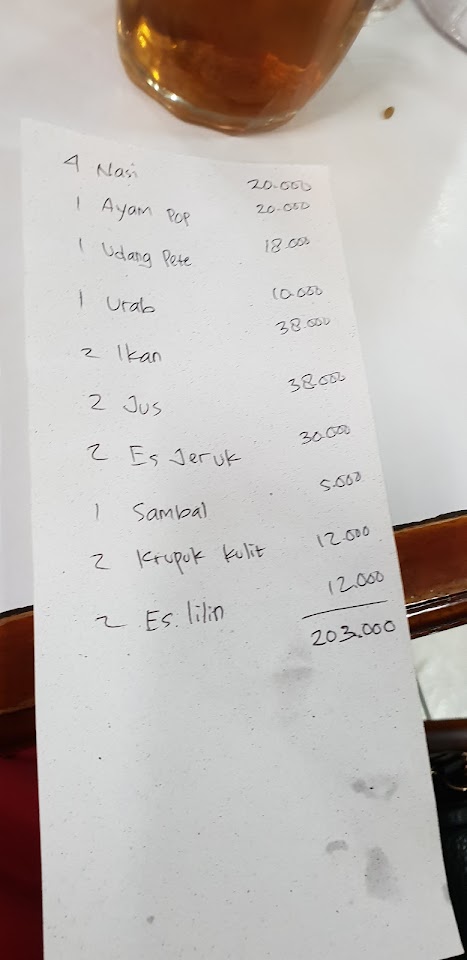 4 Nasi 20.000
1 Ayam Pop 20.000
1 Udang Pete 18.000
1 Urab 10.000
2 Ikan 38.000
2 Jus 38.000
2 Es Jeruk 30.000
1 Sambal 5.000
2 Krupuk kulit 12.000
2 Es. lilin 12.000
203.000